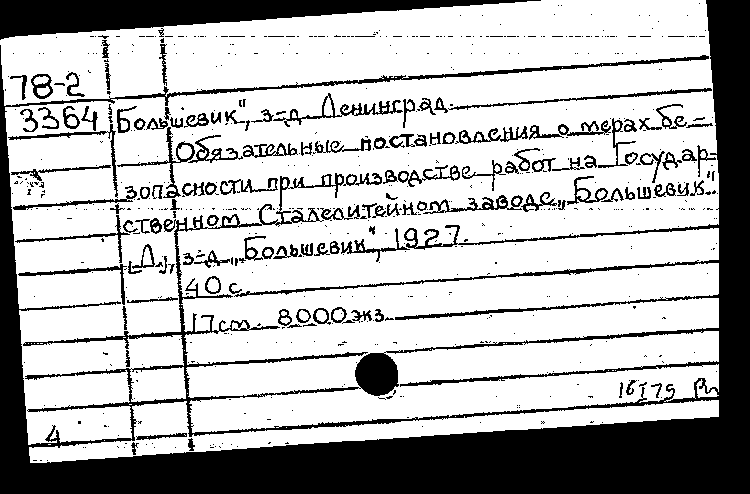 78-2
3364
„Большевик", з-д. Ленинград.
Обязательные постановления о мерах бе-
зопасности при производстве работ на Государ-
ственном Сталелитейном заводе „Большевик".
[Л.], з-д „Большевик", 1927.
40 с.
17 ст. 8000 экз.
16 I 79
4